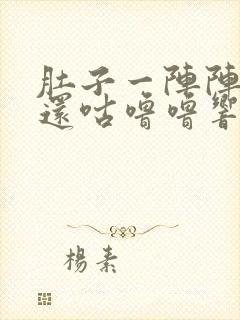 肚子一陣陣
還咕嚕嚕響
楊素